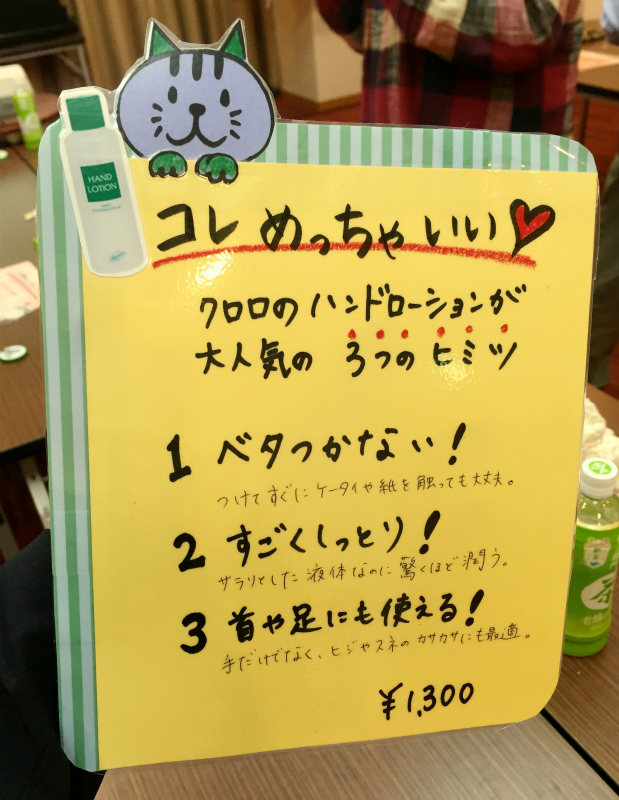 HAND
LOTION
コレ めっちゃ いい
クロロのハンドローションが
大人気の 3つのヒミツ
1 ベタつかない!
つけてすぐにケータイや紙を触っても大丈夫。
2 すごくしっとり!
サラリとした液体なのに驚くほど潤う。
3 首や足にも使える!
手だけでなく、ヒジやスネのカサカサにも最適。
¥1,300
茶